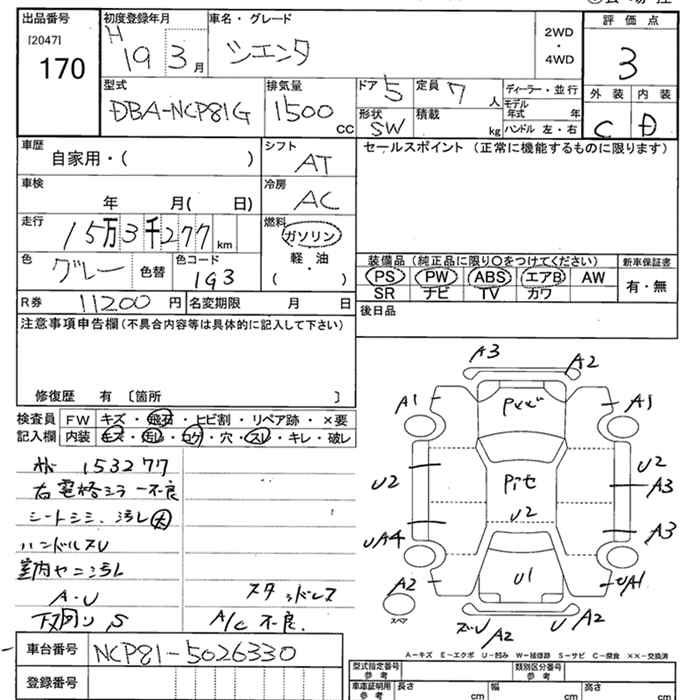 出品番号
[2047]
170
初度登録年月
H 19 3 月
車名・グレード
シエンタ
2WD
・
4WD
評価点
3
外装 内装
C D
型式
DBA-NCP81G
排気量
1500 CC
ドア 5
形状
SW
定員 7 人
積載 kg
ディーラー・並行
モデル年式 年
ハンドル 左・右
車歴
自家用・( )
シフト
AT
セールスポイント (正常に機能するものに限ります)
車検
年 月( 日)
冷房
AC
走行
15万3千277 km
燃料
ガソリン
軽油
・
( )
色
グレー 色替
色コード
1G3
装備品 (純正品に限り○をつけてください) 新車保証書
PS PW ABS エアB AW 有・無
SR ナビ TV カワ
R券 11200 円 名変期限 月 日
後日品
注意事項申告欄(不具合内容等は具体的に記入して下さい)
修復歴 有 〔箇所 〕
検査員 FW キズ・飛石・ヒビ割・リペア跡・×要
記入欄 内装 キズ・汚レ・コゲ・穴・スレ・キレ・破レ
153277
右電格ミラー不良
シートシミ、汚レ大
ハンドルスレ
室内ヤニ汚レ
A・U スタッドレス
下回リ S A/C 不良.
A3 A2
A1 A1
U2 U2
A3
U2
UA4 A3
A2 U1 UA1
スペア
A2 U A2
A-キズ E-エクボ U-凹み W-補修跡 S-サビ C-腐食 ××-交換済
車台番号 NCP81-5026330
登録番号
型式指定番号 参考 類別区分番号 参考
車庫証明用 参考 長さ cm 幅 cm 高さ cm